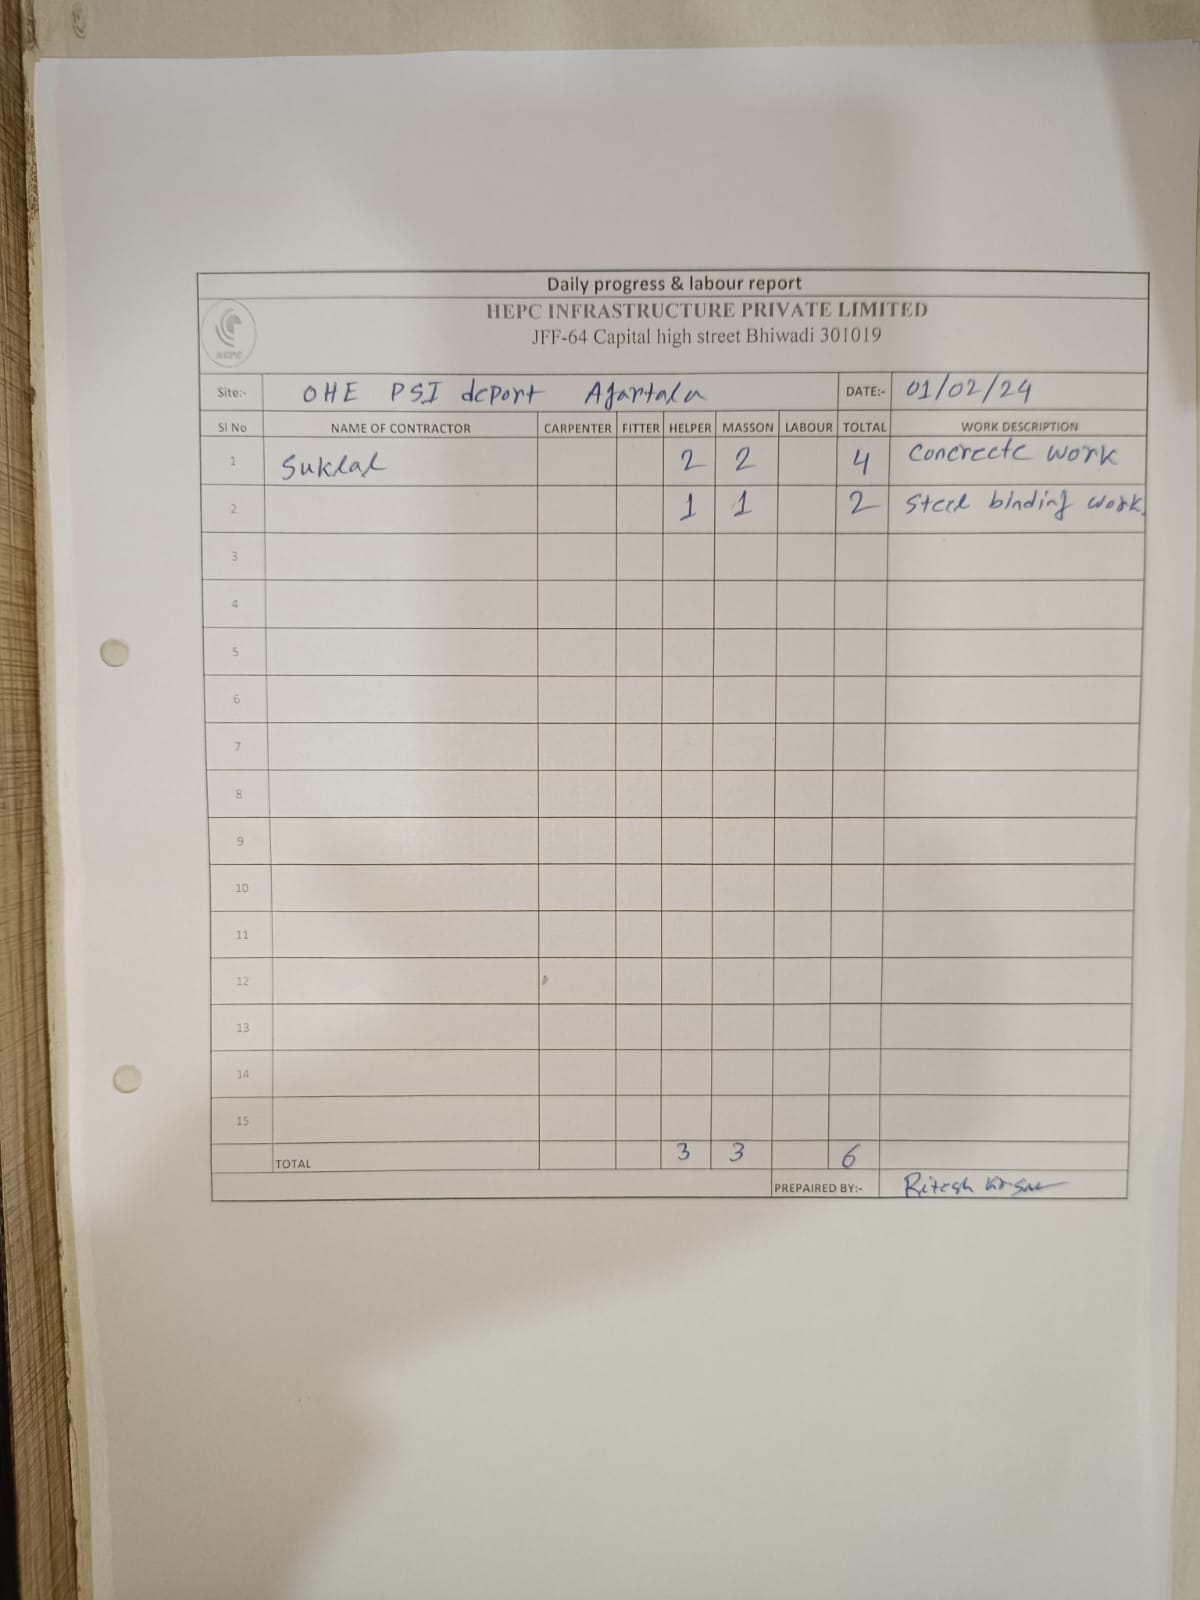 Daily progress & labour report
HEPC INFRASTRUCTURE PRIVATE LIMITED
JFF-64 Capital high street Bhiwadi 301019
HEPC
Site:- OHE PSI deport Agartala DATE:- 01/02/24
Sl No NAME OF CONTRACTOR CARPENTER FITTER HELPER MASSON LABOUR TOLTAL WORK DESCRIPTION
1 Suklal 2 2 4 Concrete work
2 1 1 2 Steel binding work.
3
4
5
6
7
8
9
10
11
12
13
14
15
TOTAL 3 3 6
PREPAIRED BY:- Ritesh